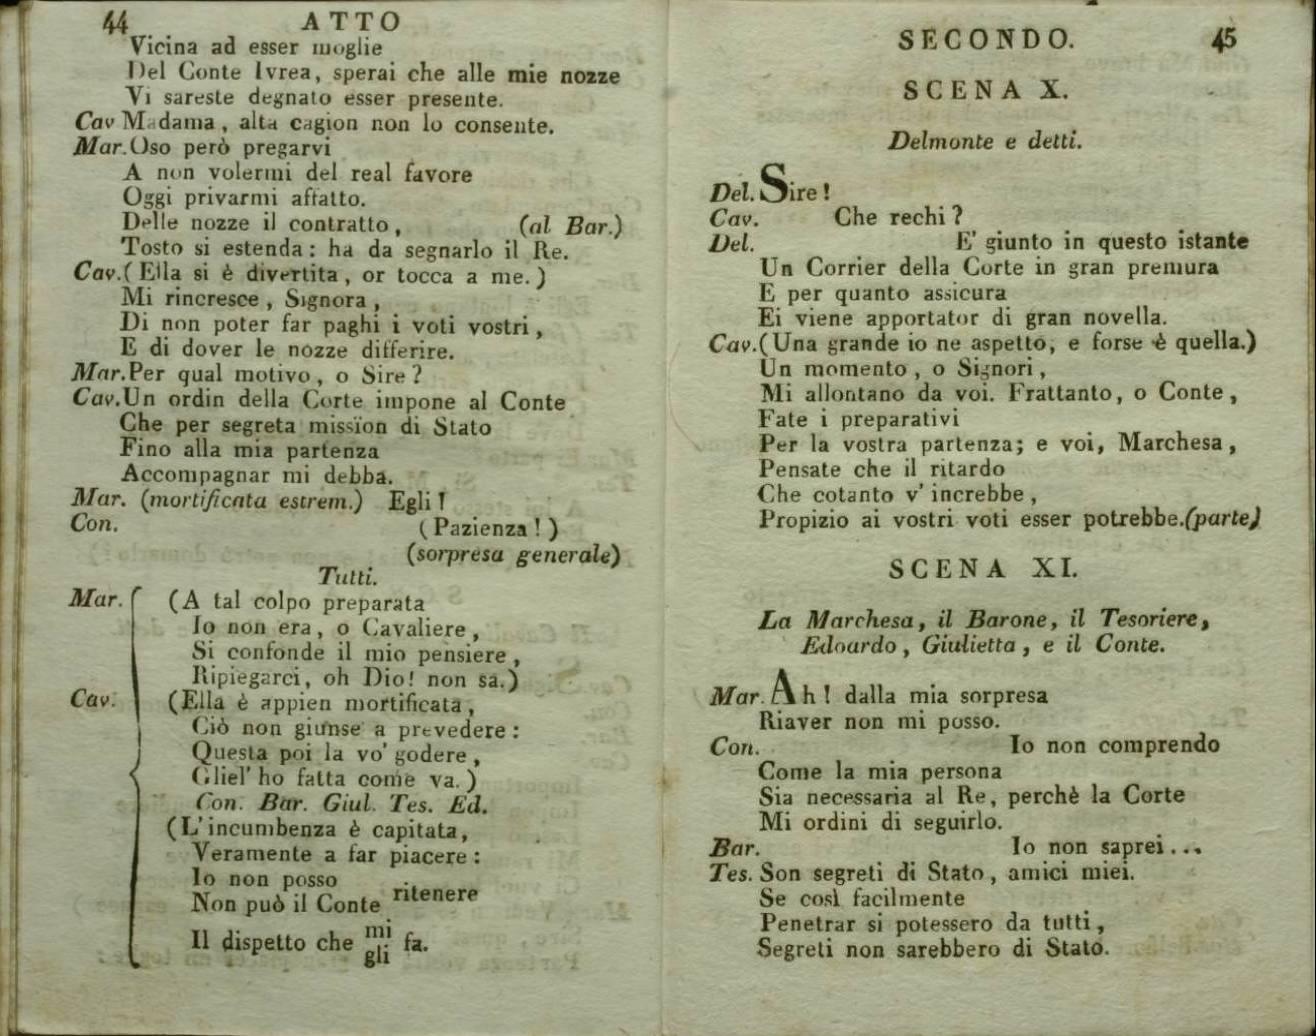 44 ATTO
Vicina ad esser moglie
Del Conte Ivrea, sperai che alle mie nozze
Vi sareste degnato esser presente.
Cav Madama, alta cagion non lo consente.
Mar. Oso però pregarvi
A non volermi del real favore
Oggi privarmi affatto.
Delle nozze il contratto, (al Bar.)
Tosto si estenda: ha da segnarlo il Re.
Cav. (Ella si è divertita, or tocca a me.)
Mi rincresce, Signora,
Di non poter far paghi i voti vostri,
E di dover le nozze differire.
Mar. Per qual motivo, o Sire?
Cav. Un ordin della Corte impone al Conte
Che per segreta missïon di Stato
Fino alla mia partenza
Accompagnar mi debba.
Mar. (mortificata estrem.) Egli!
Con. (Pazienza!)
(sorpresa generale)
Tutti.
Mar. (A tal colpo preparata
Io non era, o Cavaliere,
Si confonde il mio pensiere,
Ripiegarci, oh Dio! non sa.)
Cav. (Ella è appien mortificata,
Ciò non giunse a prevedere:
Questa poi la vo' godere,
Gliel' ho fatta come va.)
Con. Bar. Giul. Tes. Ed.
(L'incumbenza è capitata,
Veramente a far piacere:
Io non posso
Non può il Conte ritenere
Il dispetto che mi gli fa.
SECONDO. 45
SCENA X.
Delmonte e detti.
Del. Sire!
Cav. Che rechi?
Del. E' giunto in questo istante
Un Corrier della Corte in gran premura
E per quanto assicura
Ei viene apportator di gran novella.
Cav. (Una grande io ne aspetto, e forse è quella.)
Un momento, o Signori,
Mi allontano da voi. Frattanto, o Conte,
Fate i preparativi
Per la vostra partenza; e voi, Marchesa,
Pensate che il ritardo
Che cotanto v' increbbe,
Propizio ai vostri voti esser potrebbe. (parte)
SCENA XI.
La Marchesa, il Barone, il Tesoriere,
Edoardo, Giulietta, e il Conte.
Mar. Ah! dalla mia sorpresa
Riaver non mi posso.
Con. Io non comprendo
Come la mia persona
Sia necessaria al Re, perchè la Corte
Mi ordini di seguirlo.
Bar. Io non saprei...
Tes. Son segreti di Stato, amici miei.
Se così facilmente
Penetrar si potessero da tutti,
Segreti non sarebbero di Stato.